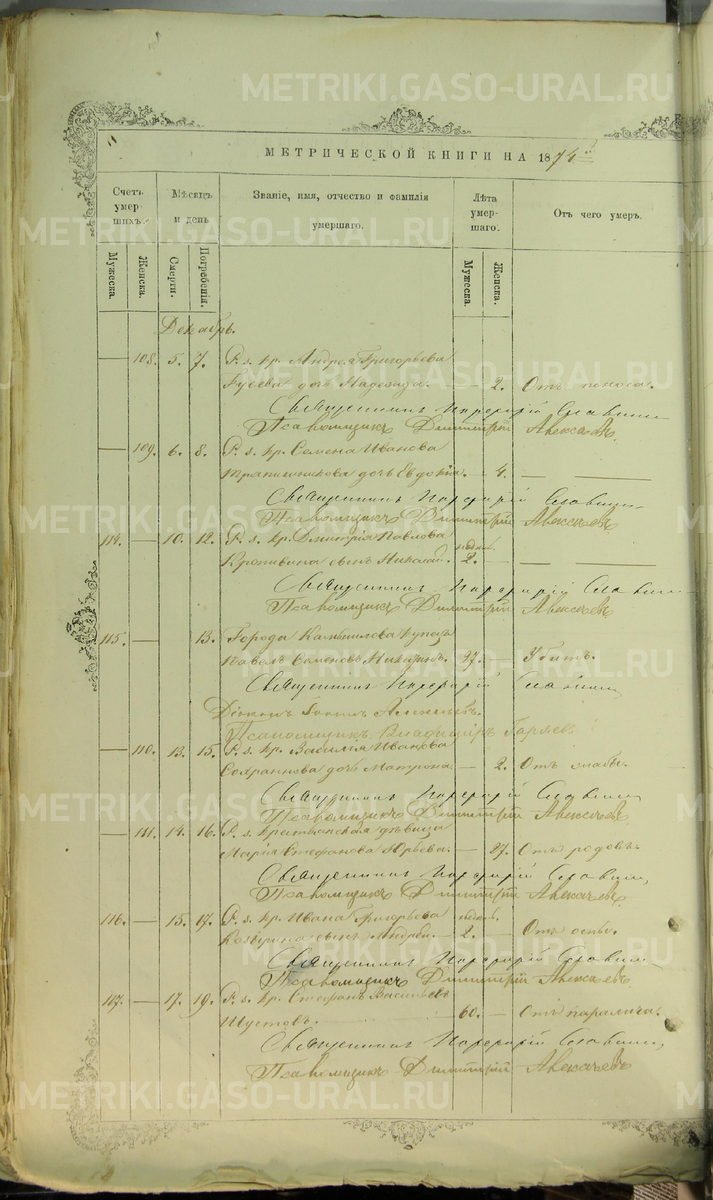 METRIKI.GASO-URAL.RU
МЕТРИЧЕСКОЙ КНИГИ НА 1874
Счетъ умер-шихъ.
Мѣсяцъ и день
Званіе, имя, отчество и фамилія умершаго.
Лѣта умер-шаго.
Отъ чего умеръ.
Мужеска.
Женска.
Смерти.
Погребенія.
Мужеска.
Женска.
Декабрь.
— 108. 5. 7. Р. з. кр. Андрея Григорьева
дочь Надежда. — 2. Отъ поноса.
Священникъ Порфирій Славнинъ
Псаломщикъ Димитрій Алексѣевъ
— 109. 6. 8. Р. з. кр. Семена Иванова
дочь Евдокія. — 4. — —
Священникъ Порфирій Славнинъ
Псаломщикъ Димитрій Алексѣевъ
114. — 10. 12. Р. з. кр. Дмитрія Павлова
Кропивина сынъ Николай. недѣл. 2. — — —
Священникъ Порфирій Славнинъ
Псаломщикъ Димитрій Алексѣевъ
115. — 13. Города Камышлова купецъ
Павелъ Семеновъ 37. Убитъ.
Священникъ Порфирій Славнинъ
Псаломщикъ Владиміръ
— 110. 13. 15. Р. з. кр. Василья Иванова
дочь Матрона — 2. Отъ
Священникъ Порфирій Славнинъ
Псаломщикъ Димитрій Алексѣевъ
— 111. 14. 16. Р. з. крестьянская дѣвица
Марія Стефанова Юрьева. — 27. Отъ родовъ.
Священникъ Порфирій Славнинъ
Псаломщикъ Димитрій Алексѣевъ
116. — 15. 17. Р. з. кр. Ивана Григорьева
сынъ Андрей. недѣл. 2. — Отъ оспы.
Священникъ Порфирій Славнинъ
Псаломщикъ Димитрій Алексѣевъ
117. — 17. 19. Р. з. кр. Стефанъ Васильевъ
Шустовъ. 60. — Отъ паралича.
Священникъ Порфирій Славнинъ
Псаломщикъ Димитрій Алексѣевъ